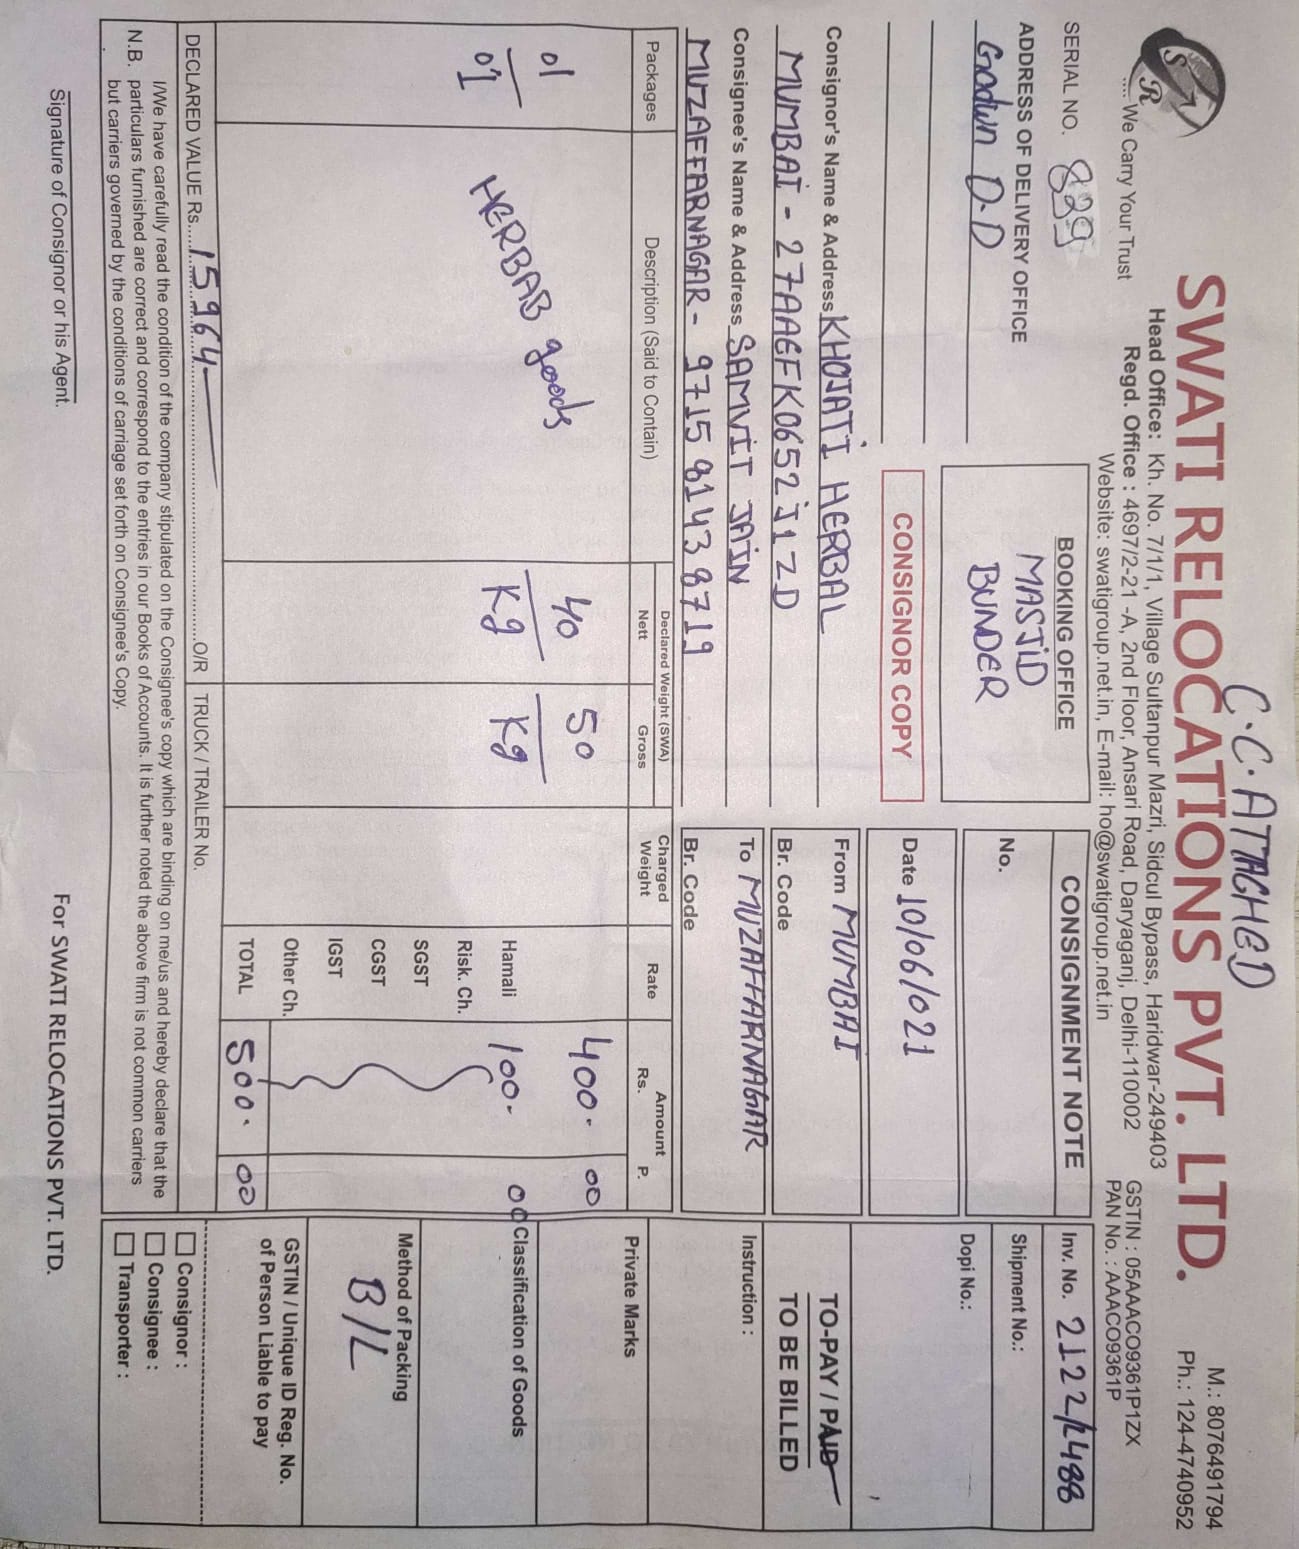 C.C. ATTACHED
SWATI RELOCATIONS PVT. LTD.
M.: 8076491794
Ph.: 124-4740952
S R
.... We Carry Your Trust
Head Office: Kh. No. 7/1/1, Village Sultanpur Mazri, Sidcul Bypass, Haridwar-249403
Regd. Office : 4697/2-21 -A, 2nd Floor, Ansari Road, Daryaganj, Delhi-110002
Website: swatigroup.net.in, E-mail: ho@swatigroup.net.in
GSTIN : 05AAACO9361P1ZX
PAN No. : AAACO9361P
SERIAL NO. 839
ADDRESS OF DELIVERY OFFICE
Godwn D.D
BOOKING OFFICE
MASJID
BUNDER
CONSIGNOR COPY
CONSIGNMENT NOTE
No.
Date 10/06/021
Inv. No. 2122/2488
Shipment No.:
Dopi No.:
Consignor's Name & Address KHOJATI HERBAL
MUMBAI - 27AAEFK0652J1ZD
Consignee's Name & Address SAMVIT JAIN
MUZAFFARNAGAR - 9715 8143 8719
From MUMBAI
Br. Code
To MUZAFFARNAGAR
Br. Code
TO-PAY / PAID
TO BE BILLED
Instruction :
Packages
Description (Said to Contain)
Declared Weight (SWA)
Nett
Gross
Charged Weight
Rate
Amount
Rs.
P.
Private Marks
01
01
HERBAB goods
40
Kg
50
Kg
400. 00
Hamali 100. 00
Risk. Ch.
SGST
CGST
IGST
Other Ch.
TOTAL 500. 00
Classification of Goods
Method of Packing
B/L
GSTIN / Unique ID Reg. No.
of Person Liable to pay
Consignor :
Consignee :
Transporter :
DECLARED VALUE Rs.....15964.....O/R
TRUCK / TRAILER No.
I/We have carefully read the condition of the company stipulated on the Consignee's copy which are binding on me/us and hereby declare that the
N.B. particulars furnished are correct and correspond to the entries in our Books of Accounts. It is further noted the above firm is not common carriers
but carriers governed by the conditions of carriage set forth on Consignee's Copy.
Signature of Consignor or his Agent.
For SWATI RELOCATIONS PVT. LTD.